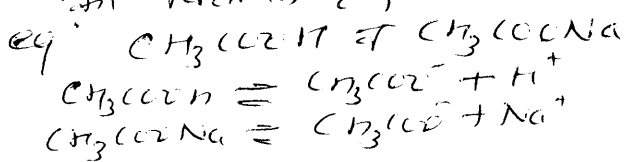 eg: CH₃CO2H + CH₃COONa
CH₃CO2H = CH₃CO2⁻ + H⁺
CH₃CO2Na = CH₃COO⁻ + Na⁺